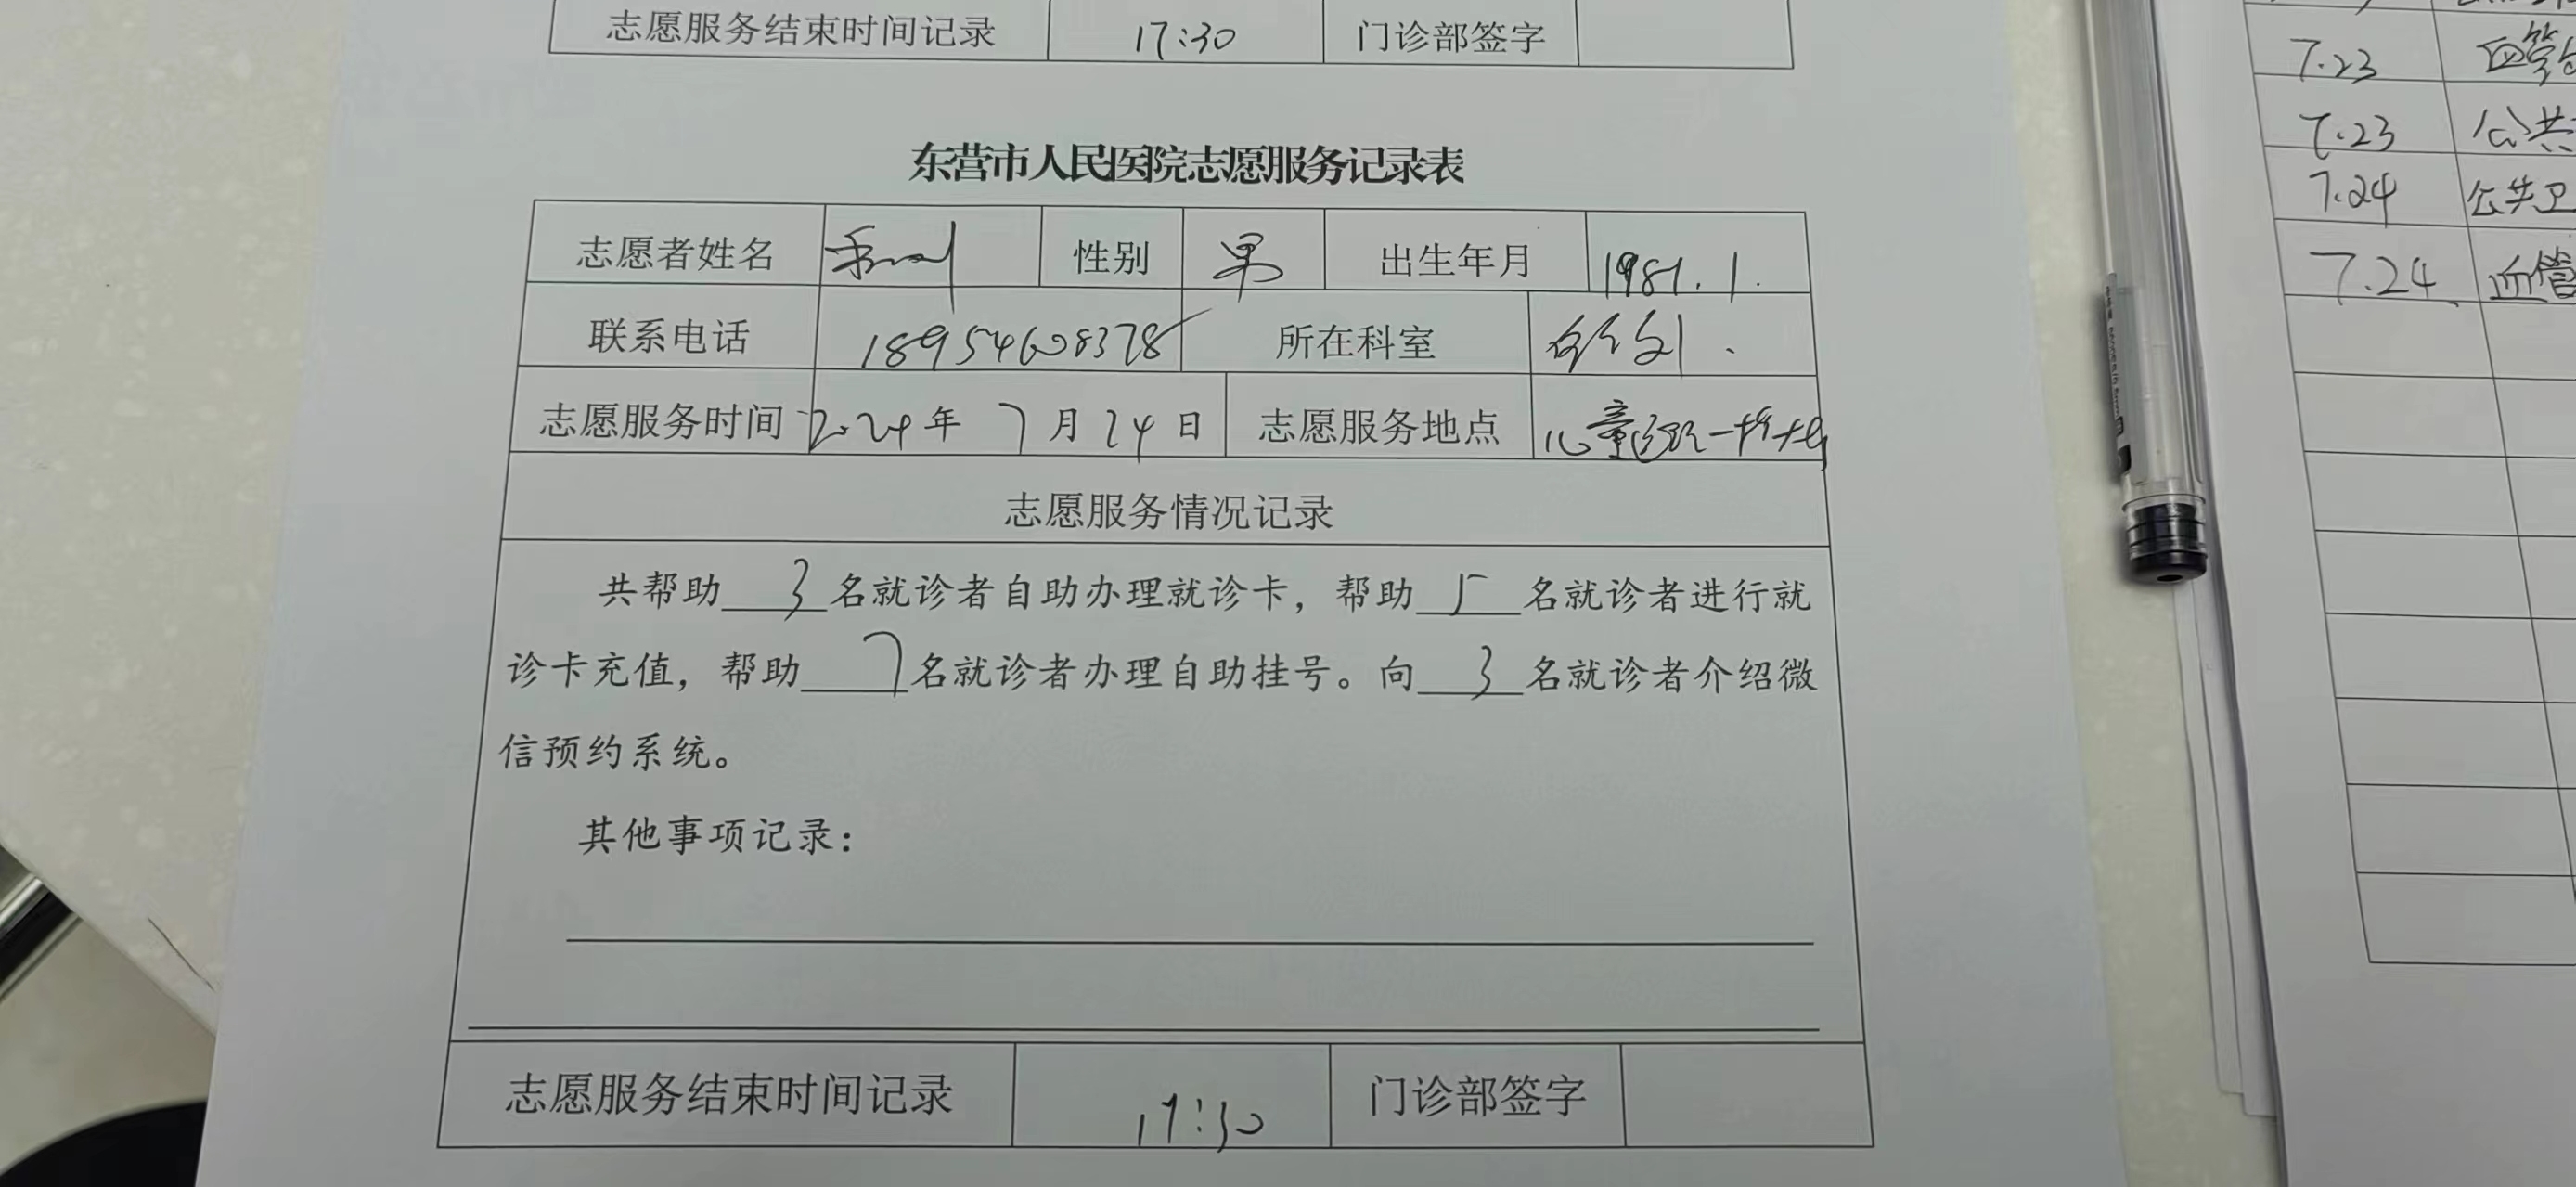 志愿服务结束时间记录 17:30 门诊部签字
东营市人民医院志愿服务记录表
志愿者姓名 性别 男 出生年月 1981.1.
联系电话 18954608378 所在科室
志愿服务时间 2024年 7月24日 志愿服务地点 儿童医院一楼大厅
志愿服务情况记录
共帮助 3 名就诊者自助办理就诊卡，帮助 5 名就诊者进行就
诊卡充值，帮助 7 名就诊者办理自助挂号。向 3 名就诊者介绍微
信预约系统。
其他事项记录：
志愿服务结束时间记录 17:30 门诊部签字
7.23 血管
7.23 公共
7.24 公共卫
7.24 血管